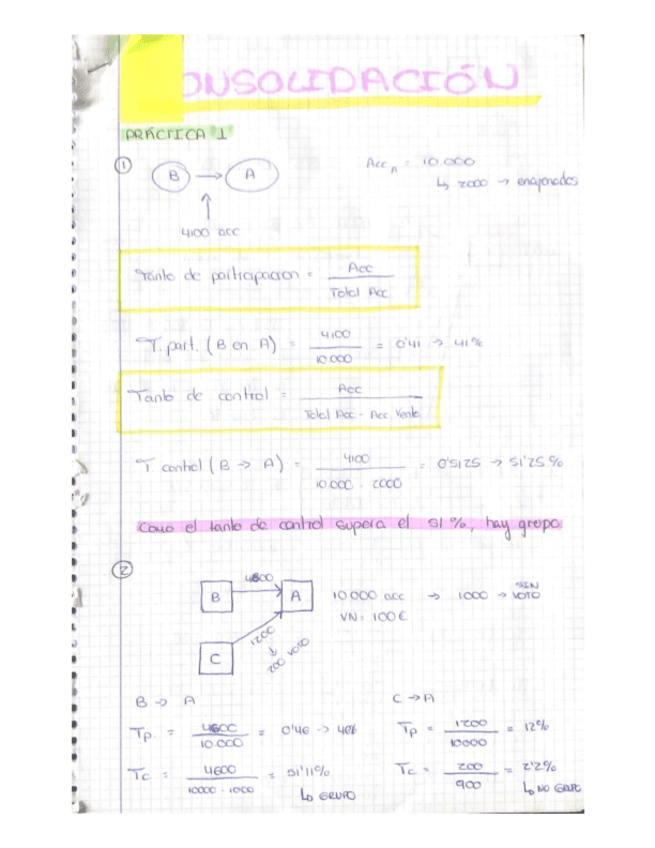 CONSOLIDACIÓN
PRÁCTICA 1
1 B → A Acc A = 10.000
↳ 2000 → enajenados
4100 acc
Tanto de participacion = Acc / Total Acc
T. part. (B en A) = 4100 / 10.000 = 0'41 → 41%
Tanto de control = Acc / Total Acc - Acc Venta
T control (B → A) = 4100 / 10.000 - 2000 = 0'5125 → 51'25%
Como el tanto de control supera el 51%, hay grupo
2 B 4600 A 10000 acc → 1000 → SIN VOTO
VN: 100€
C 1200
↳ 200 VOTO
B → A C → A
Tp. = 4600 / 10.000 = 0'46 → 46% Tp = 1200 / 10000 = 12%
Tc = 4600 / 10000 - 1000 = 51'11% Tc = 200 / 900 = 2'2%
↳ GRUPO ↳ NO GRUPO